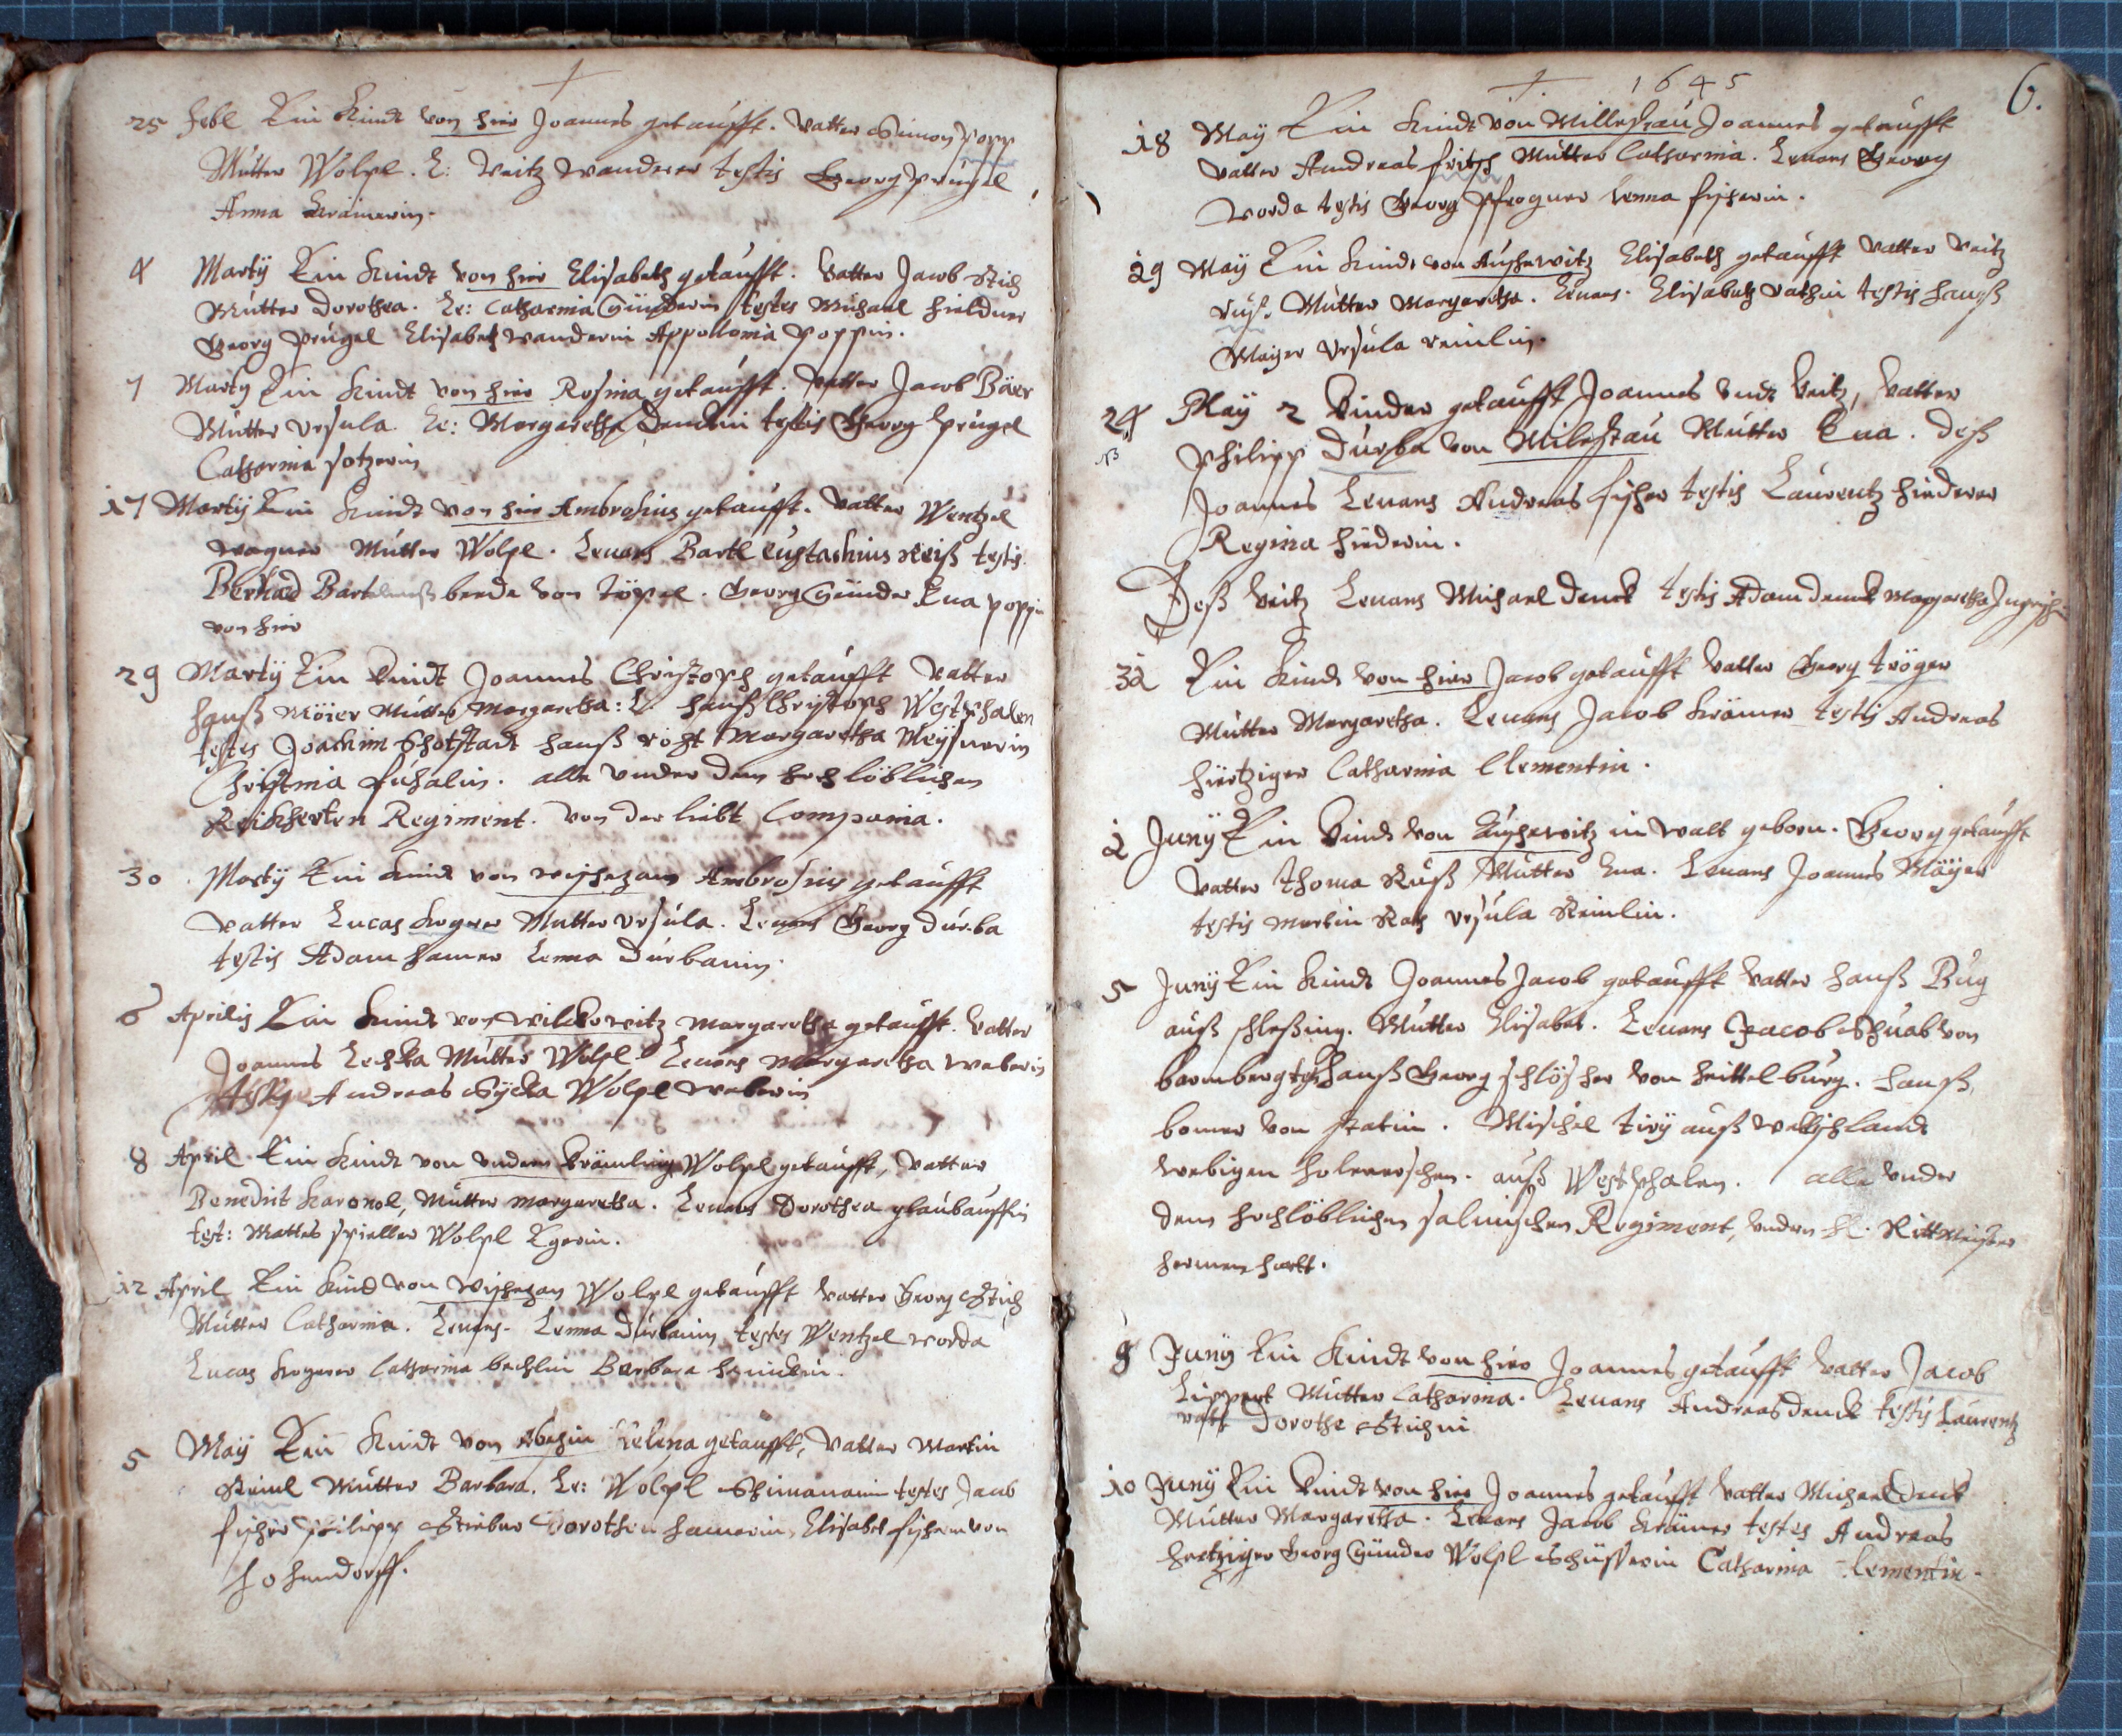 25 Febl Ein Kindt von hier Joannes getaufft. Vatter Simon Popp
Mutter Wolpl. L: Veitz Wanderer testis Georg Prugel
Anna Krämerin.
4 Martÿ Ein Kindt von hier Elisabeth getaufft. Vatter Jacob Stich
Mutter Dorothea. Le: Catharina Günderin testes Michael Hieldner
Georg Prugel Elisabeth Wanderin Appollonia Poppin.
7 Martÿ Ein Kindt von hier Rosina getaufft. Vatter Jacob Bäer
Mutter Vrsula. Le: Margaretha Denckin testis Georg Prugel
Catharina
17 Martÿ Ein Kindt von hier Ambrosius getaufft. Vatter Wentzel
Wagner Mutter Wolpl. Leuans Bartl Eustachius Reiß testis
Bartelmeß beede von Töpel. Georg Günder Eua Poppin
von hier
29 Martÿ Ein Kindt Joannes Christoph getaufft Vatter
Hanß Möier Mutter Margaretha: L. Hanß Christoph Westphalen
testes Joachim Hanß Margaretha Meÿsnerin
Christina alle vnder dem hochlöblichen
Regiment. von der Compania.
30 Martÿ Ein Kindt von Ambrosius getaufft
Vatter Lucas Kogerer Mutter Vrsula. Leuans Georg Durba
testis Adam Hamer Lenna Durbanin.
6 Aprilis Ein Kindt von Wilckowitz Margaretha getaufft. Vatter
Joannes Leschka Mutter Wolpl. Leuans Margaretha Weberin
Andreas Wolpl Weberin
8 April Ein Kindt von Wolpl getaufft, Vatter
Benedict Mutter Margaretha. Leuans Dorothea
test: Mattes Spieller Wolpl
12 April Ein Kind von Wolpl getaufft Vatter Georg Stich
Mutter Catharina. Leuans. Lenna Durbanin testes Wentzel Worda
Lucas Kogerer Catharina Barbara
5 Maÿ Ein Kindt von Helena getaufft, Vatter Martin
Reinl Mutter Barbara. Le: Wolpl testes Jacob
Fischer Philipp Dorothea Hamerin, Elisabet von
Hohendorff.
1645
6.
18 Maÿ Ein Kindt von Milleschau Joannes getaufft
Vatter Andreas Fritsch Mutter Catharina. Leuans Georg
Worda testis Georg Pfrogner Lenna Fischerin.
29 Maÿ Ein Kindt von Auschewitz Elisabeth getaufft Vatter Veitz
Ruß. Mutter Margaretha. Leuans. Elisabeth Rathin testis Hanß
Mayer Vrsula Reinlin.
24 Maÿ 2 Kinder getaufft Joannes vndt Veitz, Vatter
Philipp Durba von Mileschau Mutter Eua. Deß
Joannes Leuans Andreas Fischer testis Laurentz Hinderer
Regina Hinderin.
Deß Veitz Leuans Michael Denck testis Adam Denck Margaretha
31 Ein Kindt von hier Jacob getaufft Vatter Georg Tröger
Mutter Margaretha. Leuans Jacob Krämer testis Andreas
Hiertziger Catharina Clementin.
2 Junÿ Ein Kindt von Auschewitz im Walt geborn. Georg getaufft
Vatter Thoma Ruß Mutter Eua. Leuans Joannes Mäÿer
testis Martin Rath Vrsula Reinlin.
5 Junÿ Ein Kindt Joannes Jacob getaufft Vatter Hanß Bug
auß Schleßing. Mutter Elisabet. Leuans Jacob Schuab von
Bamberg testis Hanß Georg Schlösser von Hittelburg. Hanß
Bomer von Statin. Mischel Tirÿ auß Welschlandt
auß Westphalen. alle vnder
dem hochlöblichen Salmischen Regiment, vndern H. Rittmeister

8 Junÿ Ein Kindt von hier Joannes getaufft Vatter Jacob
Lippert Mutter Catharina. Leuans Andreas Denck testis Laurentz
Dorothe Stichin
10 Junÿ Ein Kindt von hier Joannes getaufft Vatter Michael Denck
Mutter Margaretha. Leuans Jacob Krämer testes Andreas
Hertziger Georg Günder Wolpl Schüsserin Catharina Clementin.